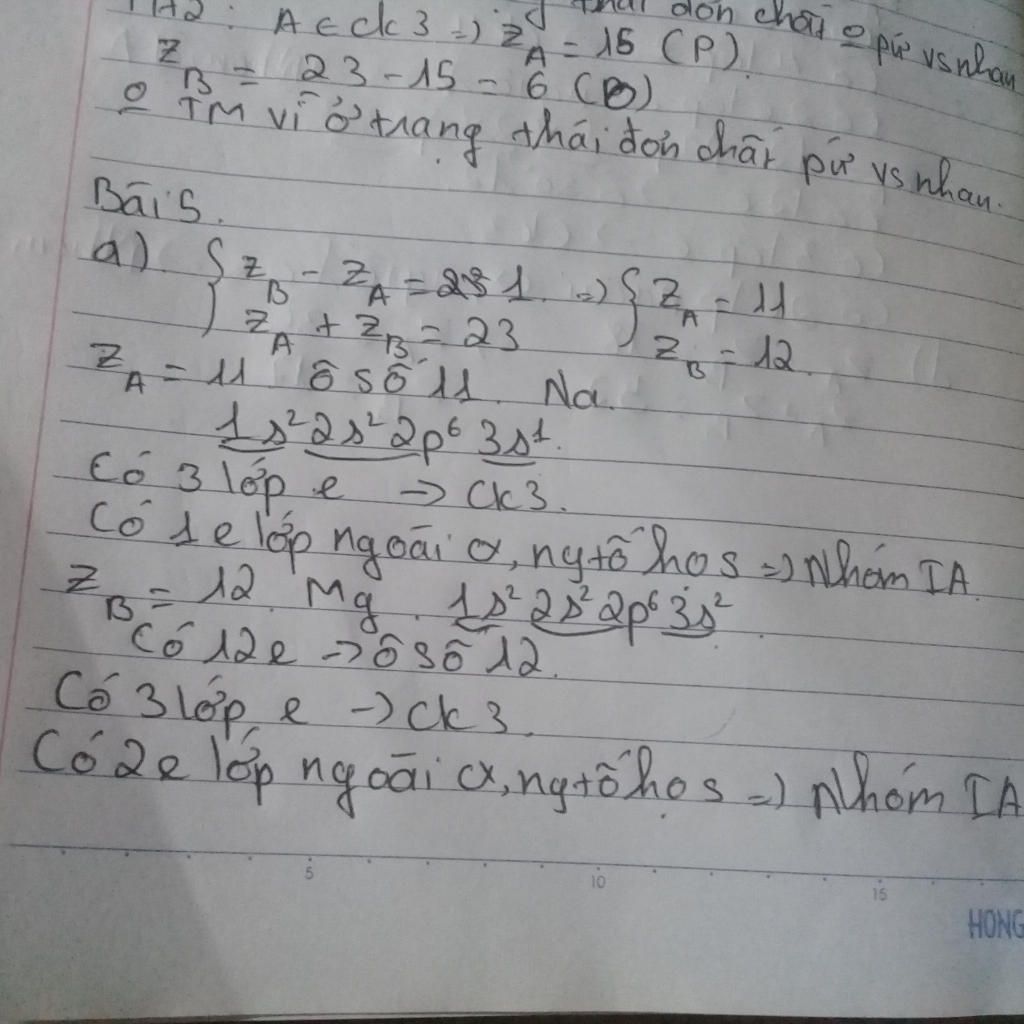 TH2: A ∈ ck 3 => Z_A = 15 (P). thái đơn chất o pứ vs nhau
Z_B = 23 - 15 = 6 (O)
o TM vì ở trạng thái đơn chất pứ vs nhau.
Bài 5.
a). { Z_B - Z_A = 1. => { Z_A = 11
Z_A + Z_B = 23 Z_B = 12.
Z_A = 11 ô số 11. Na.
1s² 2s² 2p⁶ 3s¹.
Có 3 lớp e -> ck 3.
Có 1e lớp ngoài cx, ngtố họ s => Nhóm IA.
Z_B = 12. Mg. 1s² 2s² 2p⁶ 3s².
Có 12e -> ô số 12.
Có 3 lớp e -> ck 3.
Có 2e lớp ngoài cx, ngtố họ s => Nhóm IA
5 10 15
HONG